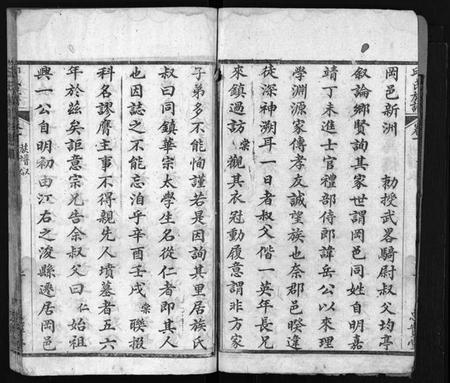 岡邑新洲　勅授武畧騎尉叔父均亭
叙論鄉賢詢其家世謂岡邑同姓自明嘉
靖丁未進士官禮部侍郎諱岳公以來理
學淵源家傳孝友誠望族也奈郡邑暌違
徒深神溯耳一日者叔父偕一英年長兄
來鎮過訪宗觀其衣冠動履意謂非方家
子弟多不能恂謹若是因詢其里居族氏
叔曰同鎮華宗太學生名從仁者即其人
也因誌之不能忘泊乎辛酉壬戌宗聯報
科名謬膺主事不得親先人墳墓者五六
年於兹矣詎意宗兄告余叔父曰仁始祖
興一公自明初由江右之浚縣遷居岡邑